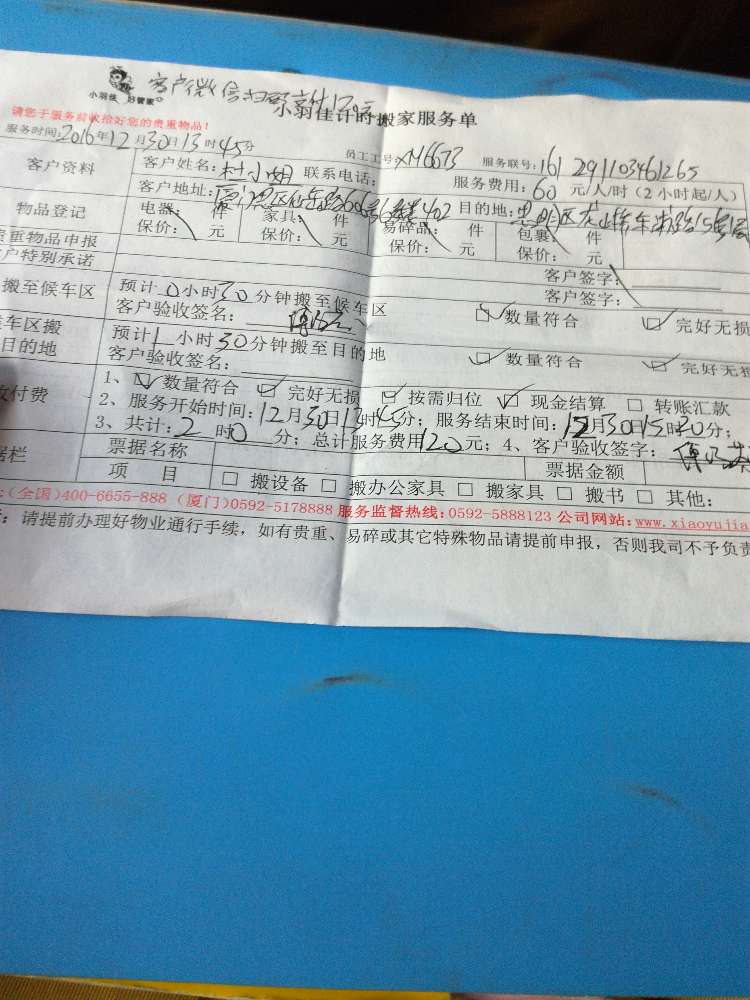 小羽佳 好管家
客户微信扫码支付120元
小羽佳计时搬家服务单
请您于服务前收拾好您的贵重物品！
服务时间:2016年12月30日13时45分 员工工号:XM6673 服务联号:161 2911034 61265
客户资料 客户姓名: 联系电话: 服务费用:60 元/人/时（2 小时起/人）
客户地址: 402 目的地:
物品登记 电器: 件 家具: 件 易碎品: 件 包裹: 件
保价: 元 保价: 元 保价: 元 保价: 元
贵重物品申报 客户签字:
户特别承诺 客户签字:
搬至候车区 预计0小时30分钟搬至候车区 ☑数量符合 ☑完好无损
客户验收签名:
车区搬 预计1小时30分钟搬至目的地 ☑数量符合 ☑完好无损
目的地 客户验收签名:
收付费 1、☑数量符合 ☑完好无损 ☑按需归位 ☑现金结算 □转账汇款
2、服务开始时间:12月30日13时45分; 服务结束时间:12月30日15时 分;
3、共计:2时0分; 总计服务费用120元; 4、客户验收签字:
据栏 票据名称 票据金额
项 目 □搬设备 □搬办公家具 □搬家具 □搬书 □其他:
:(全国)400-6655-888（厦门)0592-5178888 服务监督热线:0592-5888123 公司网站:www.xiaoyujia
: 请提前办理好物业通行手续，如有贵重、易碎或其它特殊物品请提前申报，否则我司不予负责